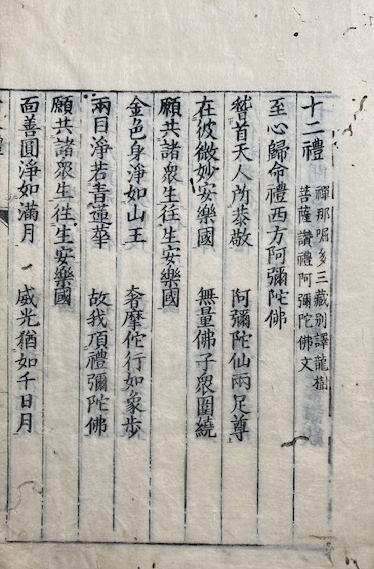 十二禮 禪那崛多三藏別譯龍樹
菩薩讚禮阿彌陀佛文
至心歸命禮西方阿彌陀佛
稽首天人所恭敬 阿彌陀仙兩足尊
在彼微妙安樂國 無量佛子眾圍繞
願共諸眾生往生安樂國
金色身淨如山王 奢摩佗行如象步
兩目淨若青蓮華 故我頂禮彌陀佛
願共諸眾生往生安樂國
面善圓淨如滿月 威光猶如千日月